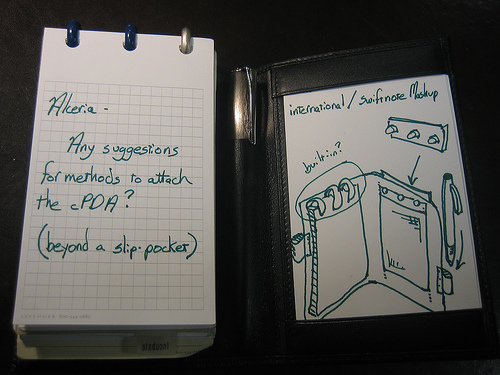 Alceria -
Any suggestions
for methods to attach
the cPDA?
(beyond a slip-pocket)
international / swiftnote Mashup
built-in?